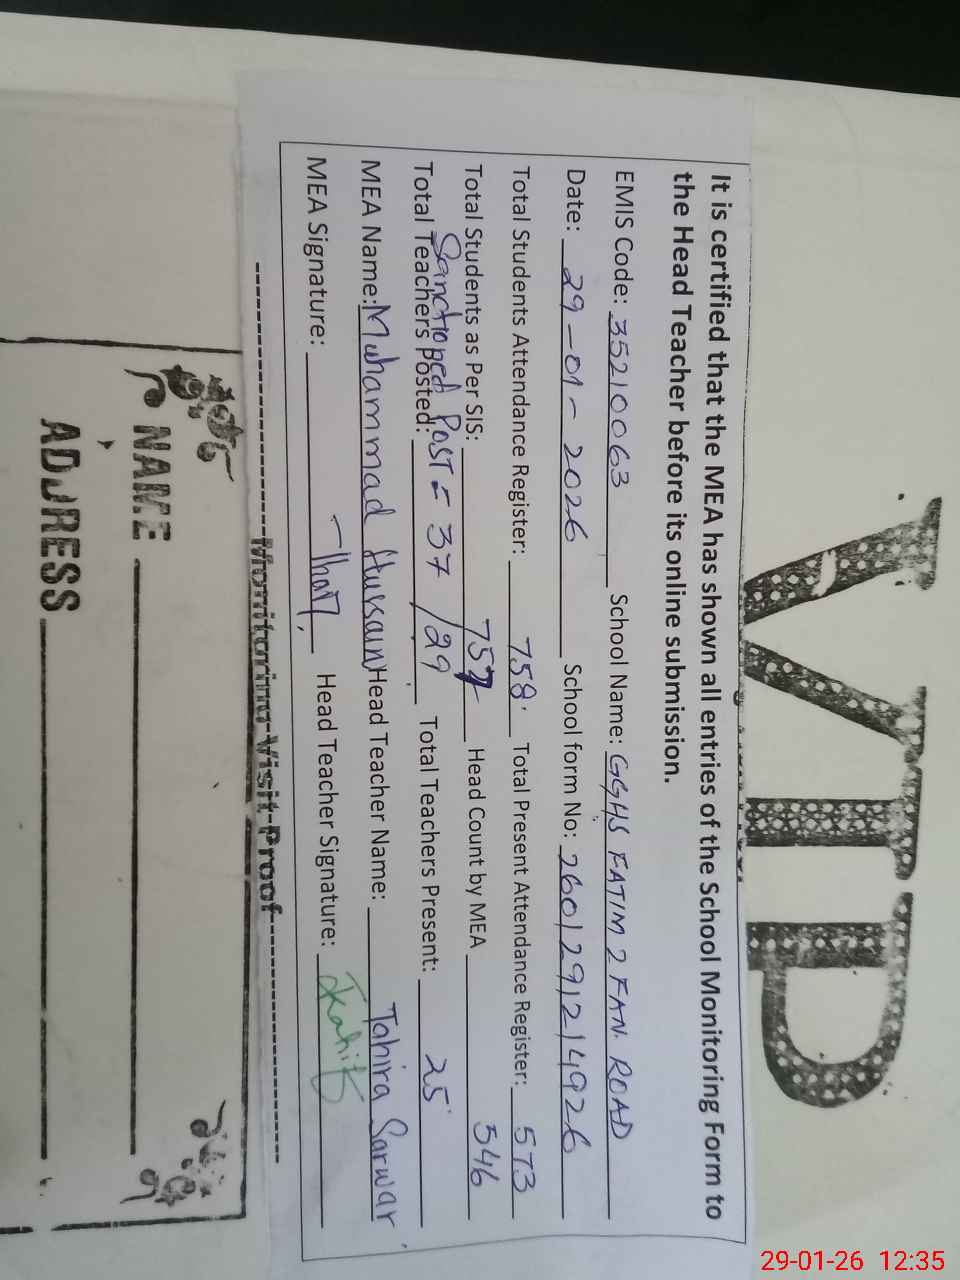 VIP
It is certified that the MEA has shown all entries of the School Monitoring Form to
the Head Teacher before its online submission.
EMIS Code: 35210063 School Name: GGHS FATIM 2 FAN. ROAD
Date: 29-01-2026 School form No: 2601291214926
Total Students Attendance Register: 758 Total Present Attendance Register: 573
Total Students as Per SIS: 757 Head Count by MEA 546
Sanctioned Post = 37
Total Teachers Posted: /29 Total Teachers Present: 25
MEA Name: Muhammad Hussain Head Teacher Name: Tahira Sarwar
MEA Signature: Head Teacher Signature:
Monitoring Visit Proof
NAME
ADDRESS
29-01-26 12:35